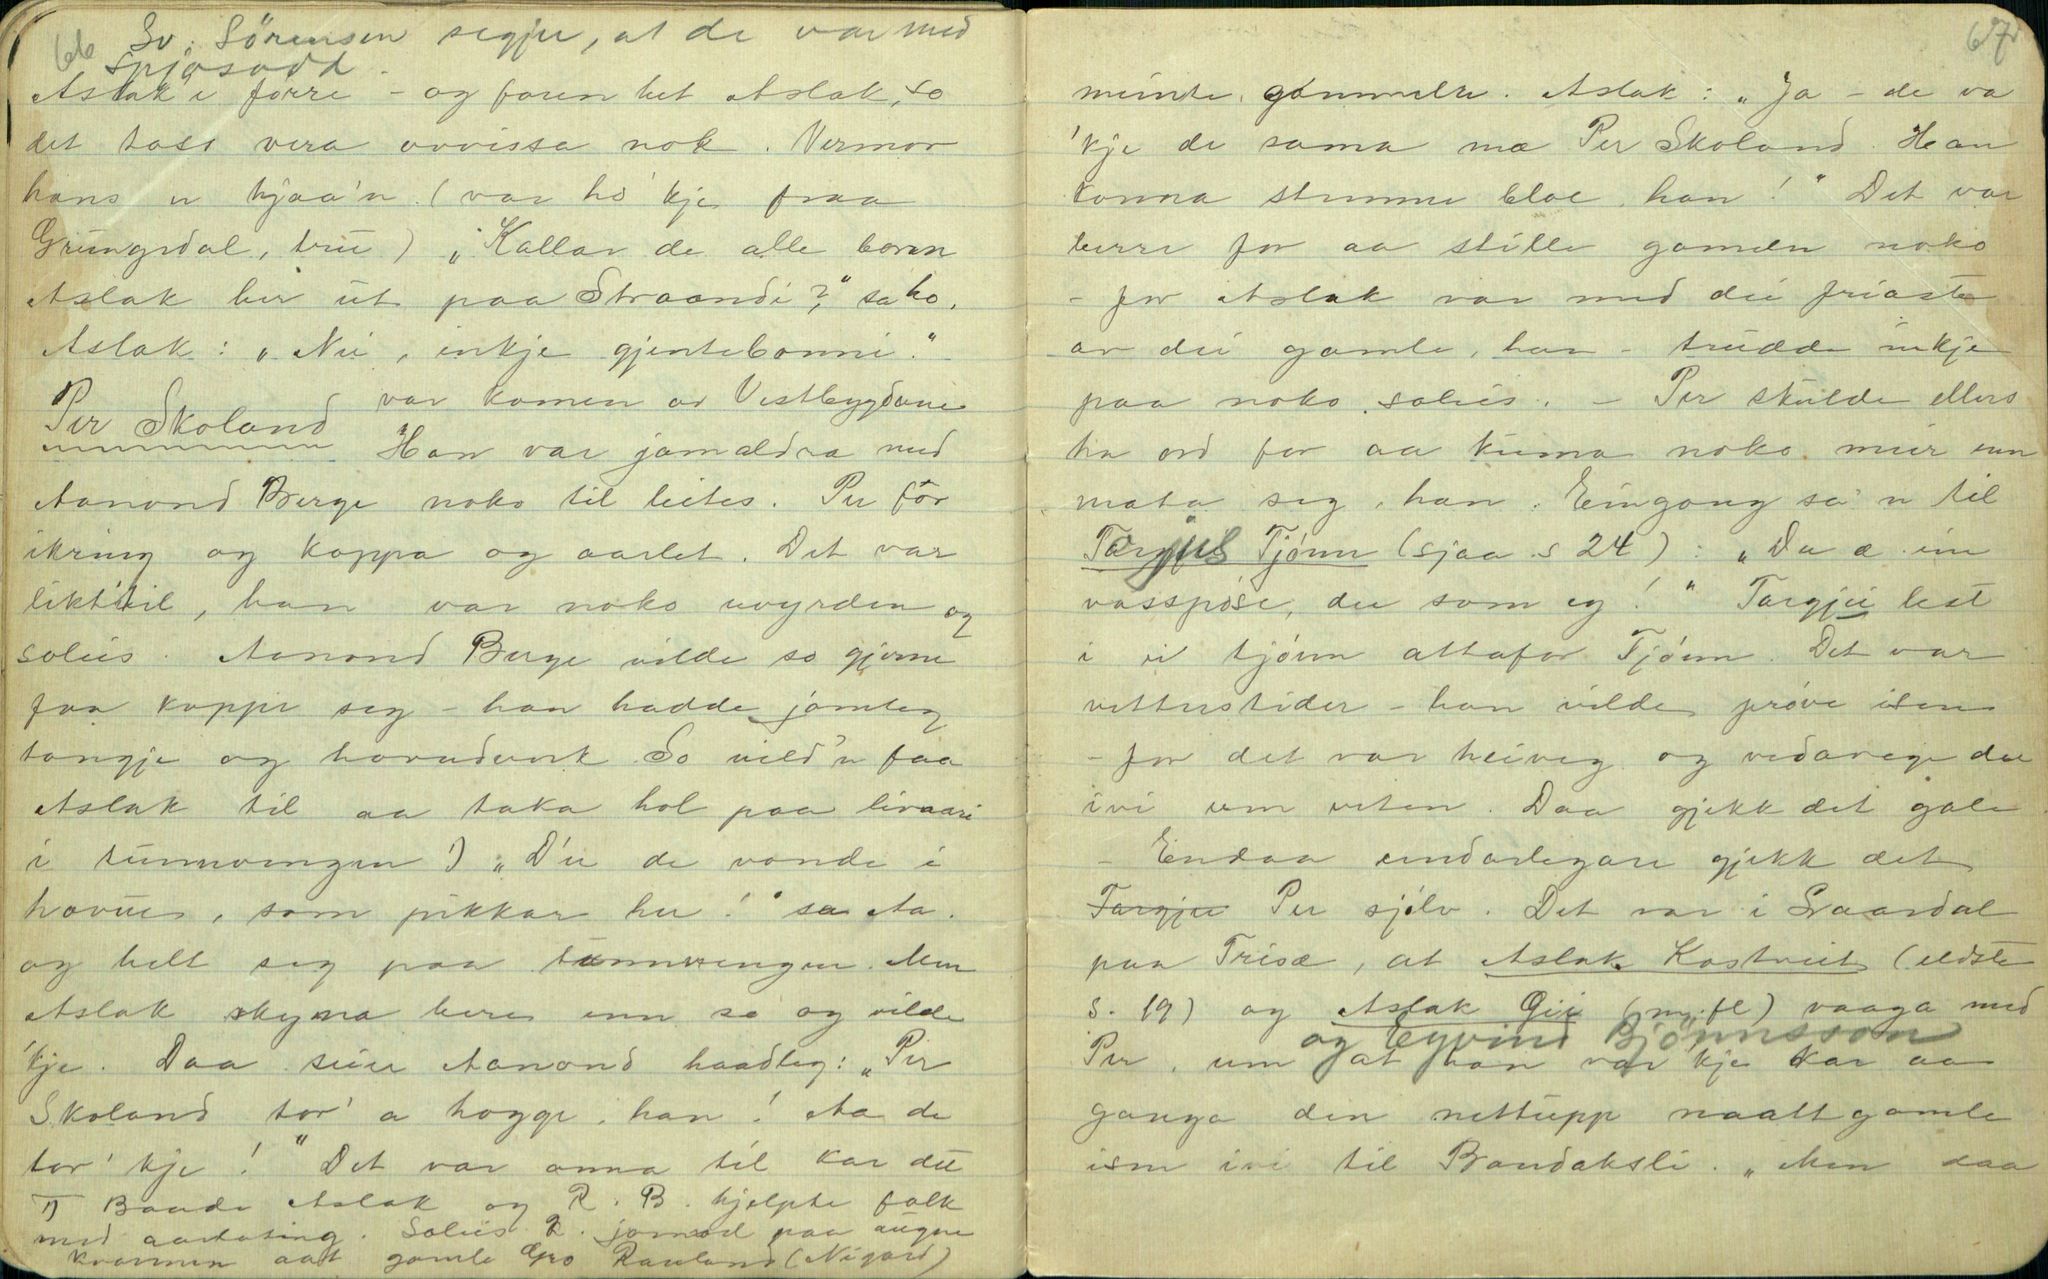 66 Sv. Sörensen segjer, at de var med
Spjosodd.
Aslak i förre - og faren het Aslak, so
det tass vera uvissa nok. Vermor
hans er hjaa'n (var ho 'kje fraa
Grungedal, tru) "Kallar de alle bonn
Aslak her ut paa Straandi?" sa ho.
Aslak: "Nei, inkje gjentebonni."
Per Skoland var komen av Vestbygdane
Han var jamaldra med
Aanond Berge noko til leites. Per för
ikring og koppa og aarlet. Det var
likt til, han var noko uvyrden og
soleis. Aanond Berge vilde so gjerne
faa koppe seg - han hadde jamleg
tangje og hovudverk. So vild'n faa
Aslak til aa taka hol paa livaari
i tunnvengen 1) "D'er de vonde i
hovue, som pikkar her!" sa Aa.
og helt seg paa tunnvengen. Men
Aslak skyna bere enn so og vilde
'kje. Daa seier Aanond haadleg: "Per
Skoland tor' a hogge, han! Aa du
tor' kje!" Det var anna til kar du
1) Baade Aslak og R. B. hjelpte folk
med aarlating. Soleis R. jamvel paa augne
kvarmen aat gamle Gro Rauland (Nigard)
67
meinte gamælen. Aslak: "Ja - de va
'kje de sama mæ Per Skoland. Han
konna stemme bloe, han!" Det var
berre for aa stille gamæln noko
- for Aslak var med dei friaste
av dei gamle, han - trudde inkje
paa noko soleis. - Per skulde ellers
ha ord for aa kunna noko meir enn
mata seg, han. Eingong sa'n til
Targjus Tjönn (sjaa s 24): "Du æ ein
vasspose, du som eg!" Targjei lest
i ei tjönn attafor Tjönn. Det var
vetterstider - han vilde pröve isen
- for det var heiveg og vedavege der
ivi um veten. Daa gjekk det gale
- Endaa underlegare gjekk det
Targjei Per sjölv. Det var i Laardal
paa Trisæ, at Aslak Kostveit (eldste
s. 19) og Aslak Gii (m. fl) vaaga med
og Eyvind Bjönnsson
Per, um at han var 'kje kar aa
ganga den nettupp naattgamle
isen ivi til Bandaksli. "Men daa